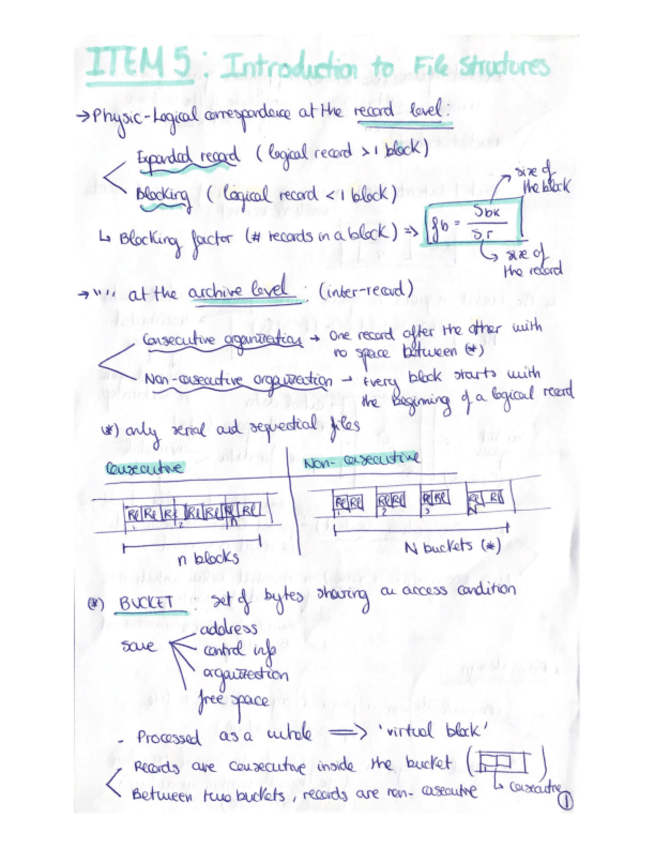 ITEM 5: Introduction to File Structures
→ Physic-Logical correspondance at the record level:
Expanded record (logical record > 1 block)
Blocking (logical record < 1 block)
size of the block
↳ Blocking factor (# records in a block) => fb = Sbk / Sr
size of the record
→ "" at the archive level: (inter-record)
Consecutive organization → One record after the other with
no space between (*)
Non-consecutive organization → Every block starts with
the beginning of a logical record
(*) only serial and sequential files
Consecutive
Non-consecutive
RL RL RL RL RL RL RL
1 2 n
RL RL RL RL RL RL RL RL
1 2 3 N
n blocks
N buckets (*)
(*) BUCKET: set of bytes sharing an access condition
same
address
control info
organization
free space
- Processed as a whole ==> 'virtual block'
Records are consecutive inside the bucket ( )
↳ consecutive
Between two buckets, records are non-consecutive
1